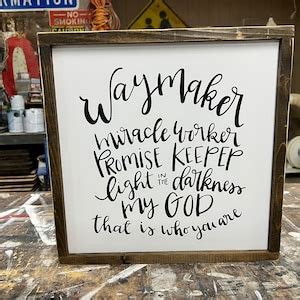 RMATION
NO
SMOKING
Waymaker
miracle worker
PROMISE KEEPER
light IN THE darkness
my GOD
that is who you are